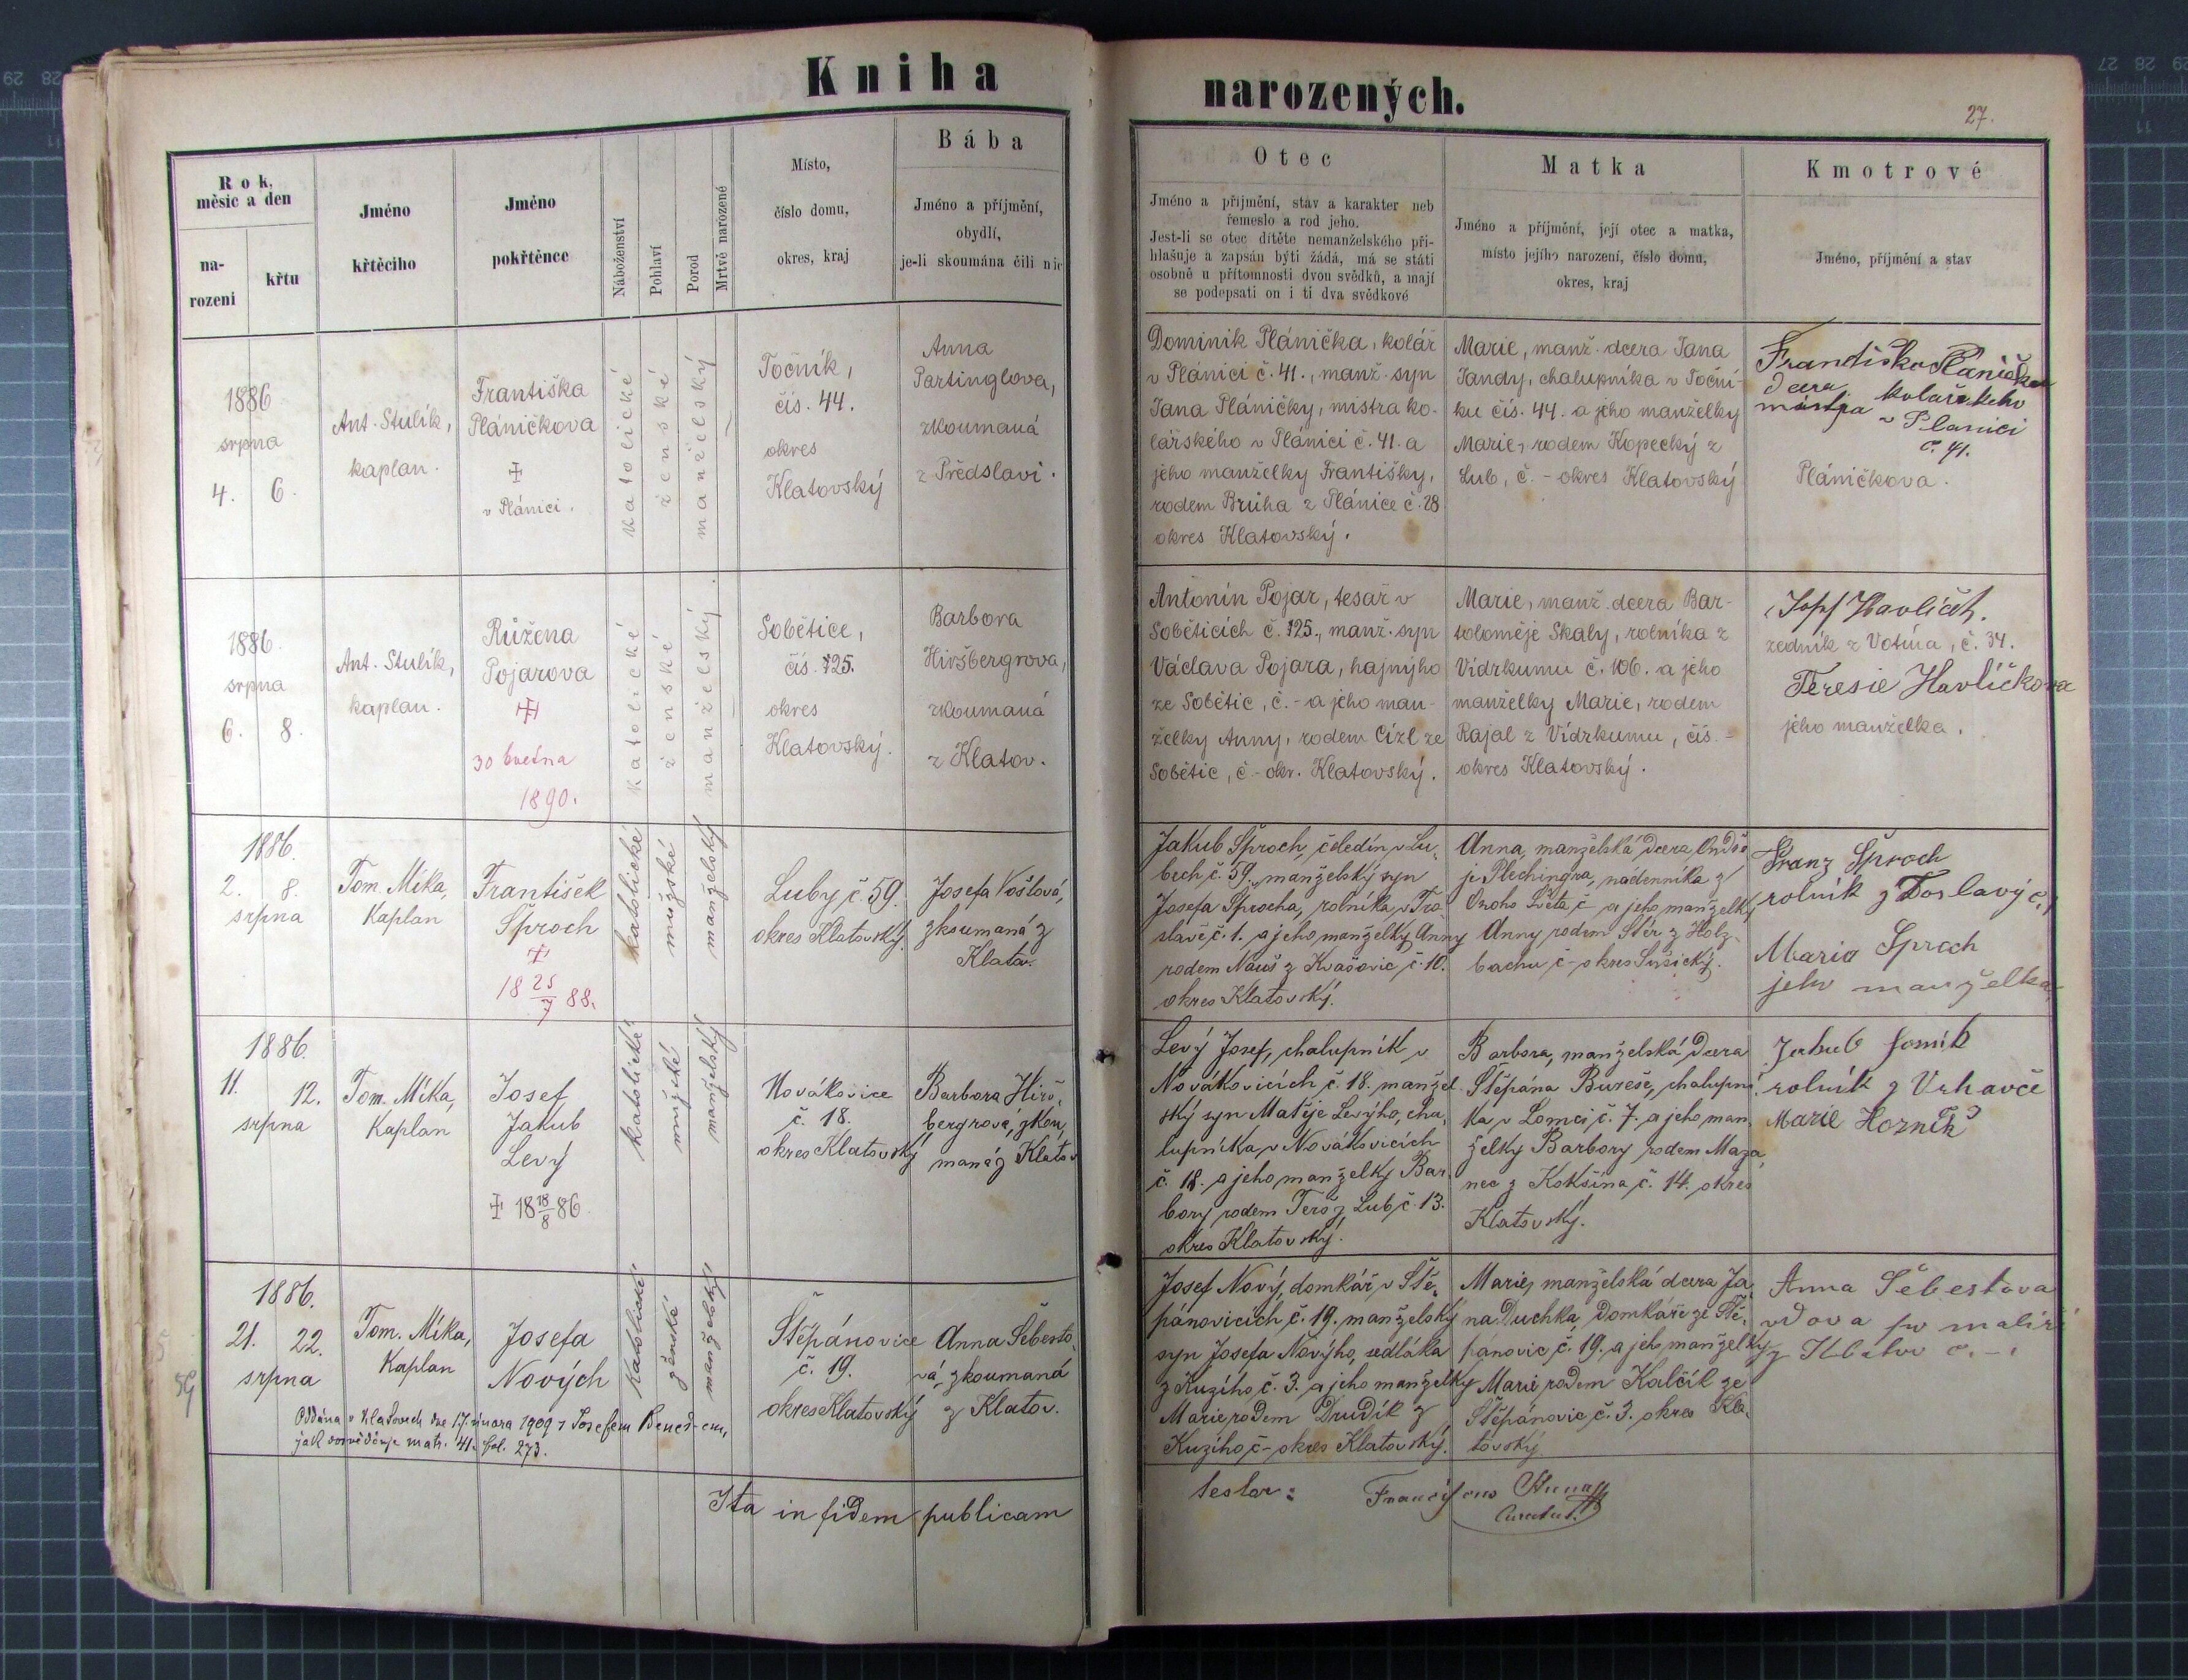 Kniha narozených.
27.
Rok, měsíc a den
na-
rození
křtu
Jméno
křtěcího
Jméno
pokřtěnce
Náboženství
Pohlaví
Porod
Mrtvě narozené
Místo,
číslo domu,
okres, kraj
Bába
Jméno a příjmění,
obydlí,
je-li skoumána čili nic
Otec
Jméno a přijmění, stav a karakter neb
řemeslo a rod jeho.
Jest-li se otec dítěte nemanželského při-
hlašuje a zapsán býti žádá, má se státi
osobně u přítomnosti dvou svědků, a mají
se podepsati on i ti dva svědkové
Matka
Jméno a příjmění, její otec a matka,
místo jejího narození, číslo domu,
okres, kraj
Kmotrové
Jméno, příjmění a stav
1886
srpna
4. 6.
Ant. Stulík,
kaplan.
Františka
Pláničkova
v Plánici.
katolické
ženské
manželský
Točník,
čís. 44.
okres
Klatovský
Anna
Partinglova,
zkoumaná
z Předslavi.
Dominik Plánička, kolář
v Plánici č. 41., manž. syn
Jana Pláničky, mistra ko-
lářského v Plánici č. 41. a
jeho manželky Františky,
rodem Brůha z Plánice č. 28
okres Klatovský.
Marie, manž. dcera Jana
Jandy, chalupníka v Toční-
ku čís. 44. a jeho manželky
Marie, rodem Kopecký z
Lub, č. - okres Klatovský
Františka Pláničkov
dcera kolařskeho
mistra v Planici
č. 41.
Pláničkova.
1886.
srpna
6. 8.
Ant. Stulík,
kaplan.
Růžena
Pojarova
30 května
1890.
katolické
ženské
manželský
Sobětice,
čís. 125.
okres
Klatovský.
Barbora
Hiršbergrova,
zkoumaná
z Klatov.
Antonín Pojar, tesař v
Soběticích č. 125., manž. syn
Václava Pojara, hajnýho
ze Sobětic, č. - a jeho man-
želky Anny, rodem Cízl ze
Sobětic, č - okr. Klatovský.
Marie, manž. dcera Bar-
toloměje Skaly, rolníka z
Vidrkumu č. 106. a jeho
manželky Marie, rodem
Rajal z Vidrkumu, čís. -
okres Klatovský.
Josef Havlíček.
zedník z Votína, č. 34.
Teresie Havlíčkova
jeho manželka.
1886.
2. 8.
srpna
Tom. Míka,
Kaplan
František
Šproch
18 25/7 88.
katolické
mužské
manželský
Luby č. 59.
okres Klatovský.
Josefa Vošlová,
zkoumaná z
Klatov.
Jakub Šproch, čeledín v Lu-
bech č. 59., manželský syn
Josefa Šprocha, rolníka v Tro-
slavě č. 1. a jeho manželky Anny
rodem Nauš z Kvašovic č. 10.
okres Klatovský.
Anna, manželská dcera Ondře
je Plechingra, nádenníka z
Onoho Světa č - a jeho manželky
Anny rodem Stér z Holz-
bachu č - okres Sušický.
Franz Šproch
rolník z
Maria Šproch
jeho manželka
1886.
11. 12.
srpna
Tom. Míka,
Kaplan
Josef
Jakub
Levý
18 18/8 86.
katolické
mužské
manželský
Novákovice
č. 18.
okres Klatovský
Barbora Hirš-
bergrová, zkou,
maná z Klatov
Levý Josef, chalupník v
Novákovicích č. 18. manžel-
ský syn Matěje Levýho, cha,
lupníka v Novákovicích
č. 18. a jeho manželky Bar-
bory rodem Tereš z Lub č. 13.
okres Klatovský.
Barbora, manželská dcera
Štěpána Bureše, chalupní-
ka v Lomci č. 7. a jeho man,
želky Barbory rodem Maza,
nec z Kokšína č. 14. okres
Klatovský.
Jakub
rolník z Vrhavče
Marie
1886.
21. 22.
srpna
Tom. Míka,
Kaplan
Josefa
Nových
Katolické
ženská
manželský
Štěpánovice
č. 19.
okres Klatovský
Anna Šebesto,
vá, zkoumaná
z Klatov.
Josef Nový, domkář v Ště,
pánovicích č. 19. manželský
syn Josefa Novýho, sedláka
z Kuzího č. 3. a jeho manželky
Marie rodem Drudík z
Kuzího č - okres Klatovský.
Marie, manželská dcera Ja,
na Duchka, Domkáře ze Ště,
pánovic č. 19. a jeho manželky
Marie rodem Kalčík ze
Štěpánovic č. 3. okres Kla,
tovský
Anna Šebestova
vdova po malíři
z Klatov č. -.
Oddána v Klatovech dne 17. února 1909 s Josefem Beneš-em,
jak dosvědčuje matr. 41. fol. 273.
59
Ita in fidem publicam
testor: